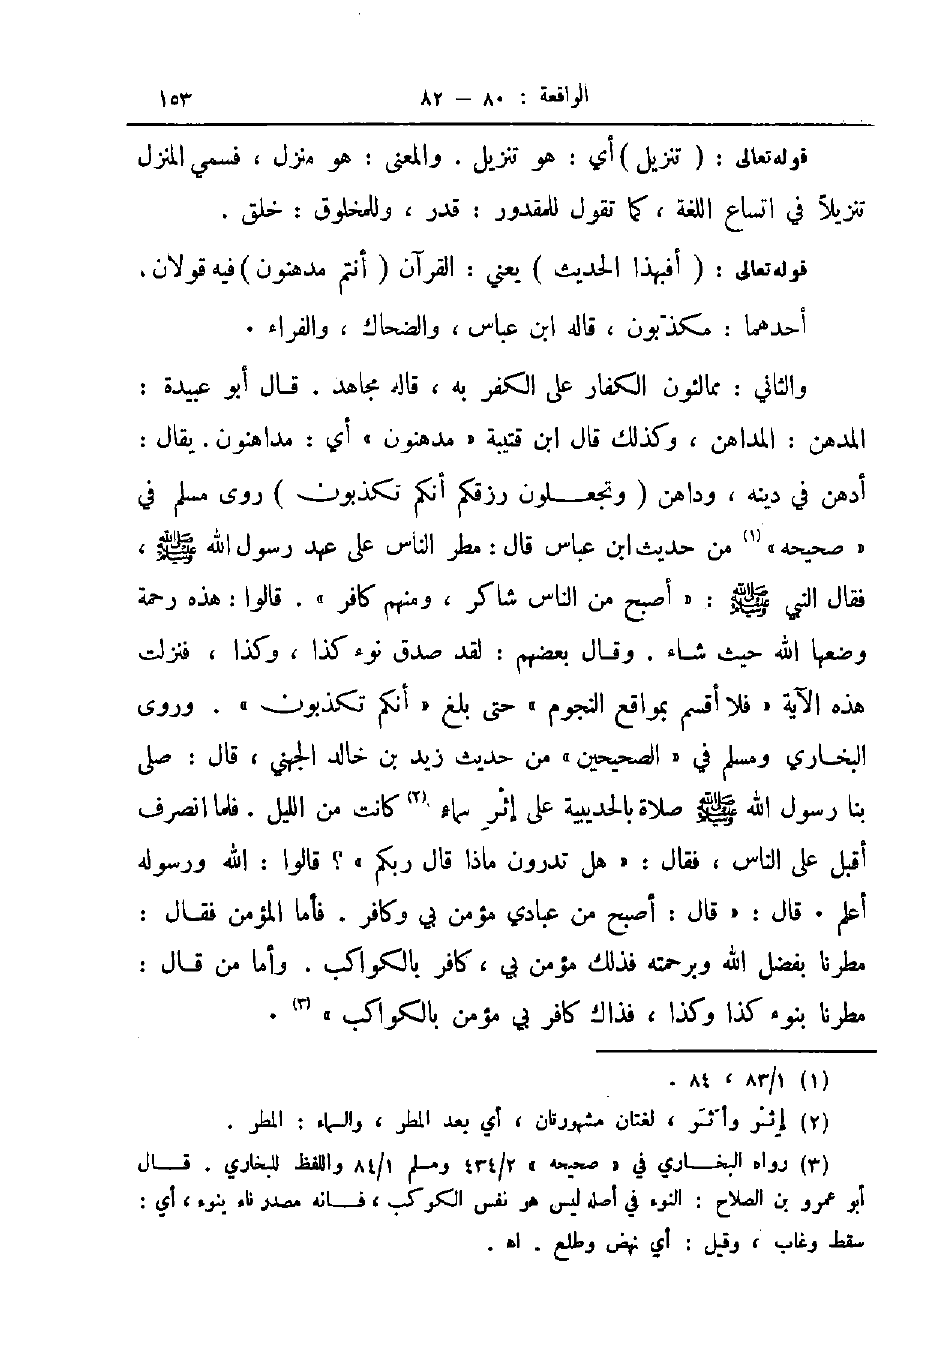 الواقعة : ٨٠ – ٨٢ ١٥٣
قوله تعالى : ( تنزيل ) أي : هو تنزيل . والمعنى : هو منزل ، فسمي المنزل
تنزيلاً في اتساع اللغة ، كما تقول للمقدور : قدر ، وللمخلوق : خلق .
قوله تعالى : ( أفبهذا الحديث ) يعني : القرآن ( أنتم مدهنون ) فيه قولان .
أحدهما : مكذّبون ، قاله ابن عباس ، والضحاك ، والفراء .
والثاني : ممالئون الكفار على الكفر به ، قاله مجاهد . قال أبو عبيدة :
المدهن : المداهن ، وكذلك قال ابن قتيبة « مدهنون » أي : مداهنون . يقال :
أدهن في دينه ، وداهن ( وتجعلون رزقكم أنكم تكذبون ) روى مسلم في
« صحيحه » (١) من حديث ابن عباس قال : مطر الناس على عهد رسول الله ﷺ ،
فقال النبي ﷺ : « أصبح من الناس شاكر ، ومنهم كافر » . قالوا : هذه رحمة
وضعها الله حيث شاء . وقال بعضهم : لقد صدق نوء كذا ، وكذا ، فنزلت
هذه الآية « فلا أقسم بمواقع النجوم » حتى بلغ « أنكم تكذبون » . وروى
البخاري ومسلم في « الصحيحين » من حديث زيد بن خالد الجهني ، قال : صلى
بنا رسول الله ﷺ صلاة بالحديبية على إثْرِ سماء (٢) كانت من الليل . فلما انصرف
أقبل على الناس ، فقال : « هل تدرون ماذا قال ربكم » ؟ قالوا : الله ورسوله
أعلم . قال : « قال : أصبح من عبادي مؤمن بي وكافر . فأما المؤمن فقال :
مطرنا بفضل الله وبرحمته فذلك مؤمن بي ، كافر بالكواكب . وأما من قال :
مطرنا بنوء كذا وكذا ، فذاك كافر بي مؤمن بالكواكب » (٣) .
(١) ٨٣/١ ، ٨٤ .
(٢) إثْر وأَثَر ، لغتان مشهورتان ، أي بعد المطر ، والسماء : المطر .
(٣) رواه البخاري في « صحيحه » ٤٣٤/٢ ومسلم ٨٤/١ واللفظ للبخاري . قال
أبو عمرو بن الصلاح : النوء في أصله ليس هو نفس الكوكب ، فانه مصدر ناء ينوء ، أي :
سقط وغاب ، وقيل : أي نهض وطلع . اه .